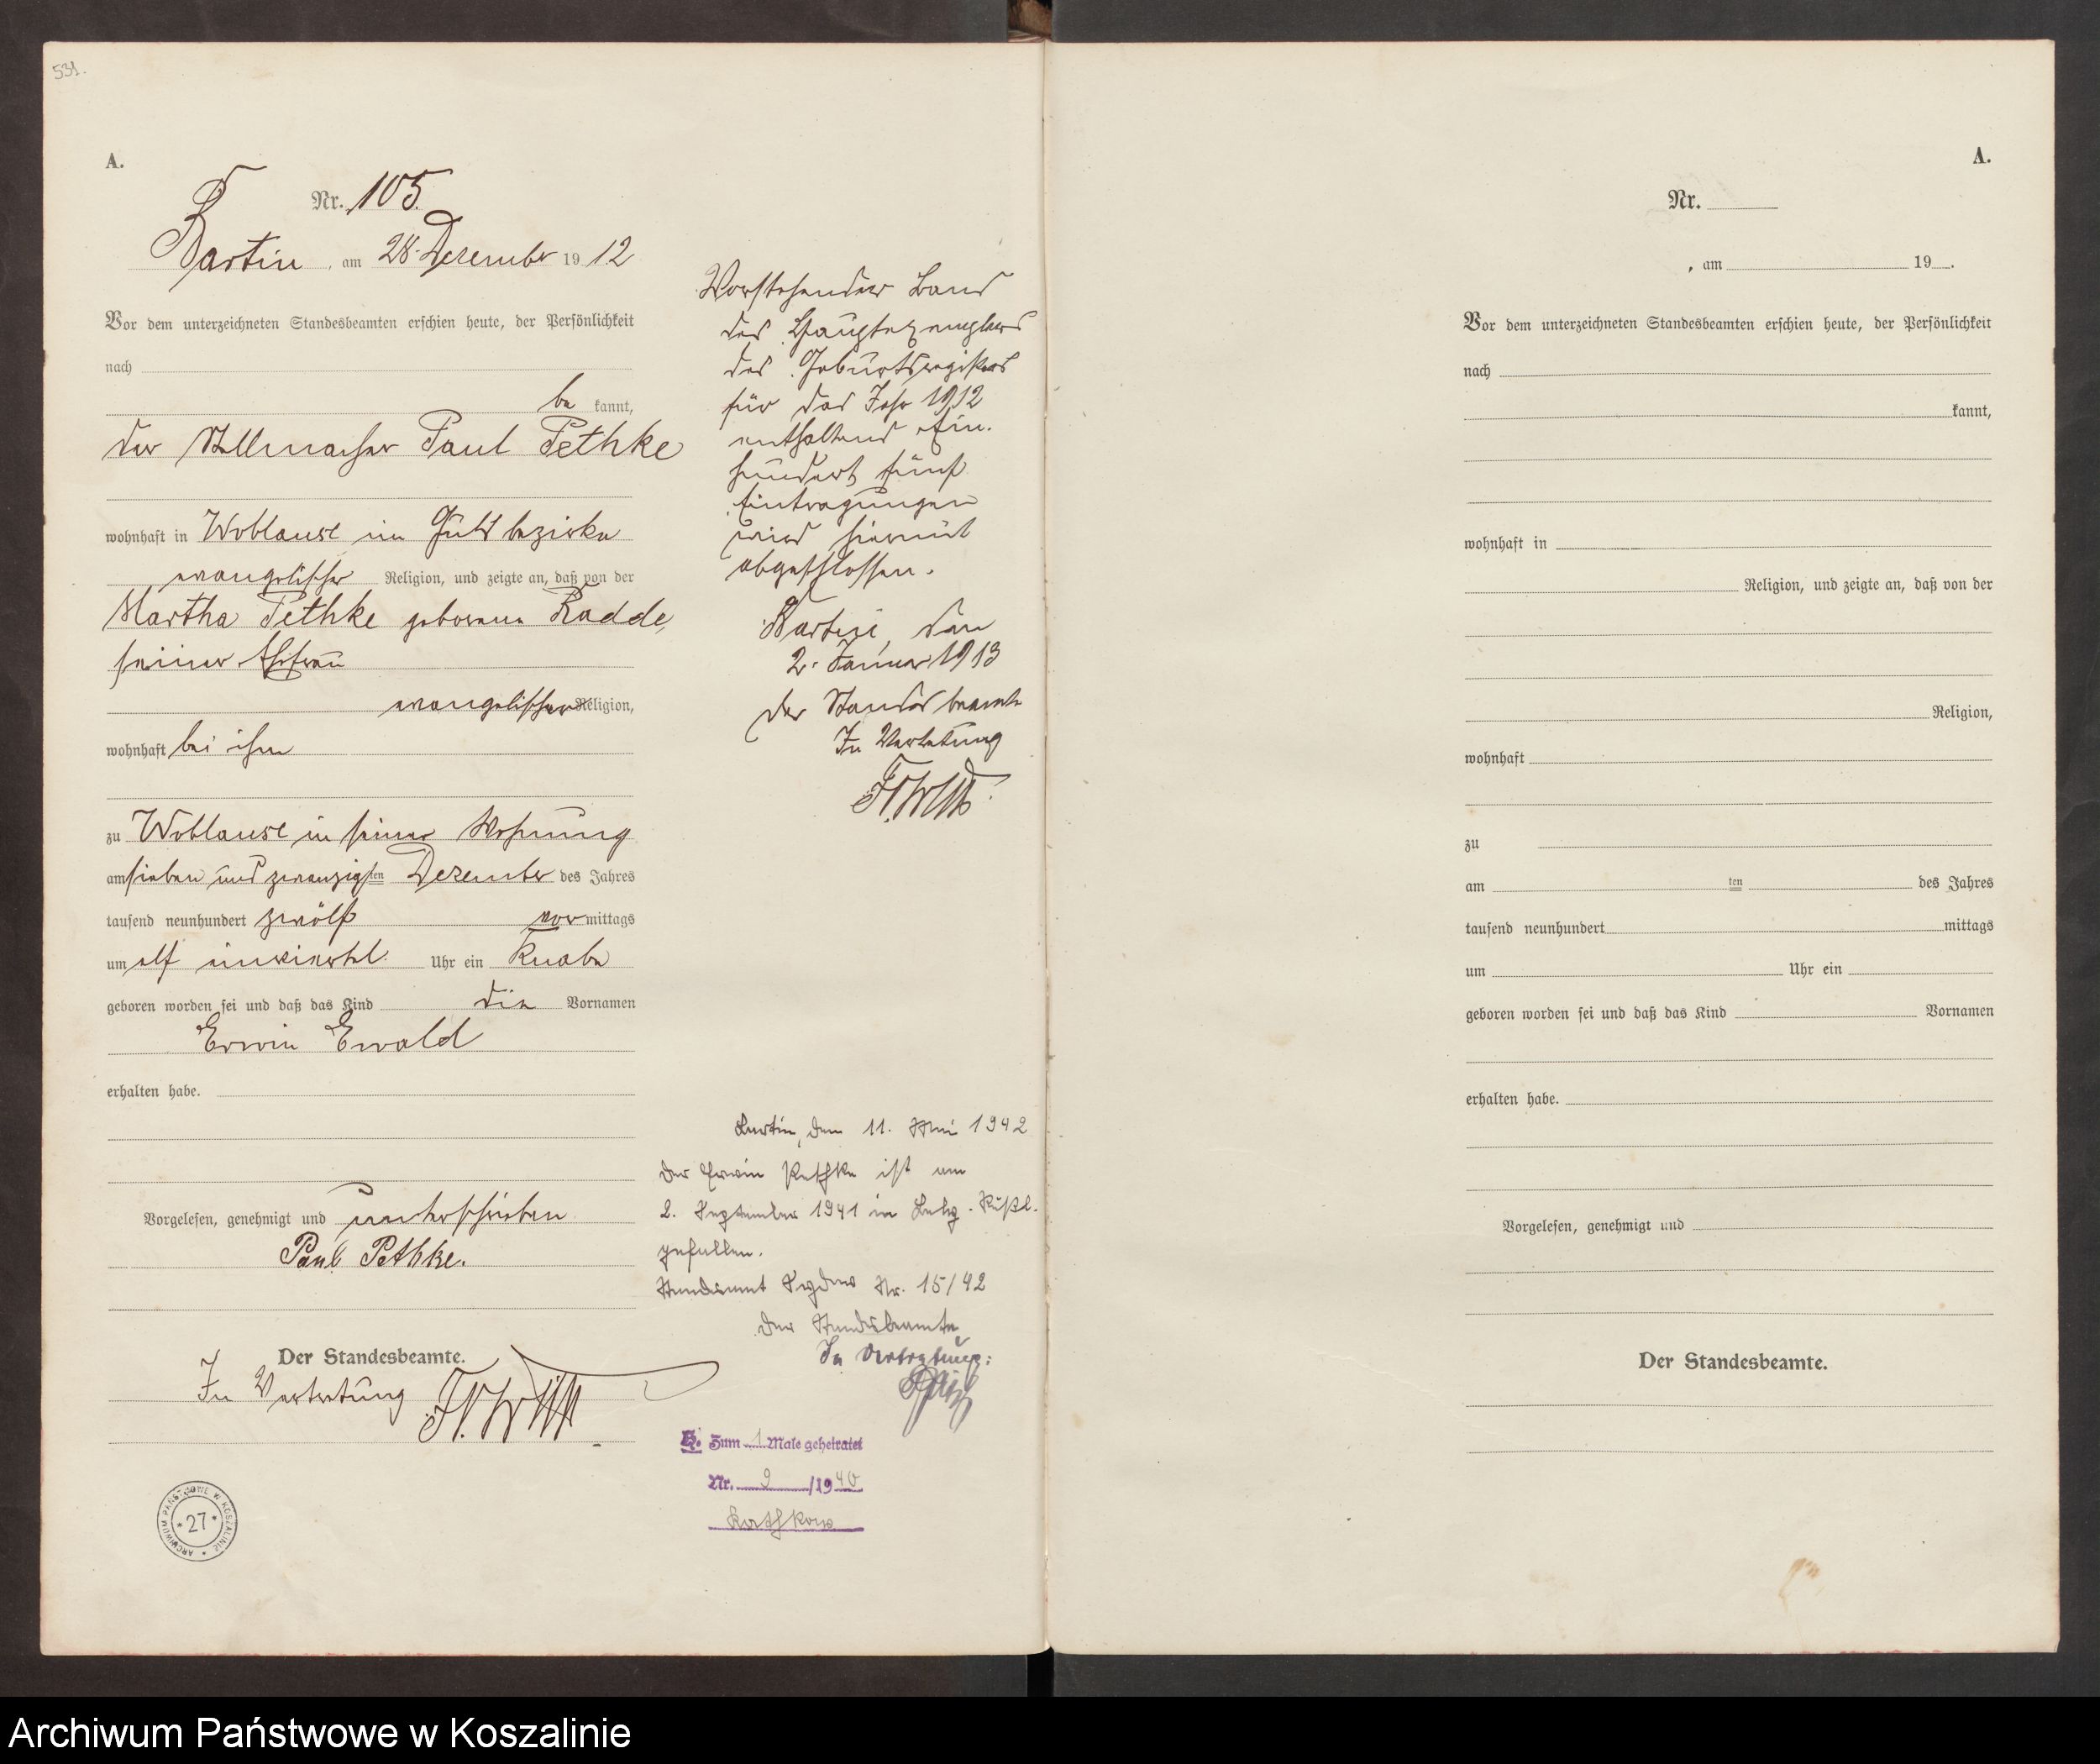 531.
A.
Nr. 105.
Bartin, am 28. Dezember 1912
Vor dem unterzeichneten Standesbeamten erschien heute, der Persönlichkeit
nach
be kannt,
der Stellmacher Paul Pethke
wohnhaft in Woblanse im Gutsbezirke
evangelischer Religion, und zeigte an, daß von der
Martha Pethke geborene Radde,
seiner Ehefrau
evangelischer Religion,
wohnhaft bei ihm
zu Woblanse in seiner Wohnung
am sieben und zwanzigsten Dezember des Jahres
tausend neunhundert zwölf vormittags
um elf einviertel Uhr ein Knabe
geboren worden sei und daß das Kind die Vornamen
Erwin Ewald
erhalten habe.
Vorgelesen, genehmigt und unterschrieben
Paul Pethke.
Der Standesbeamte.
In Vertretung
ARCHIWUM PAŃSTWOWE W KOSZALINIE
* 27 *
Vorstehender Band
des Hauptexemplars
des Geburtsregisters
für das Jahr 1912
enthaltend Ein-
hundert fünf
Eintragungen
wird hiermit
abgeschlossen.
Bartin, den
2. Januar 1913
Der Standesbeamte
In Vertretung
Bartin, den 11. Mai 1942
Der Erwin Pethke ist am
2. September 1941 in
gefallen.
Standesamt Nr. 15/42
Der Standesbeamte
In Vertretung:
E. Zum 1 Male geheiratet
Nr. 9 /1940
A.
Nr.
, am 19 .
Vor dem unterzeichneten Standesbeamten erschien heute, der Persönlichkeit
nach
kannt,
wohnhaft in
Religion, und zeigte an, daß von der
Religion,
wohnhaft
zu
am ten des Jahres
tausend neunhundert mittags
um Uhr ein
geboren worden sei und daß das Kind Vornamen
erhalten habe.
Vorgelesen, genehmigt und
Der Standesbeamte.
Archiwum Państwowe w Koszalinie